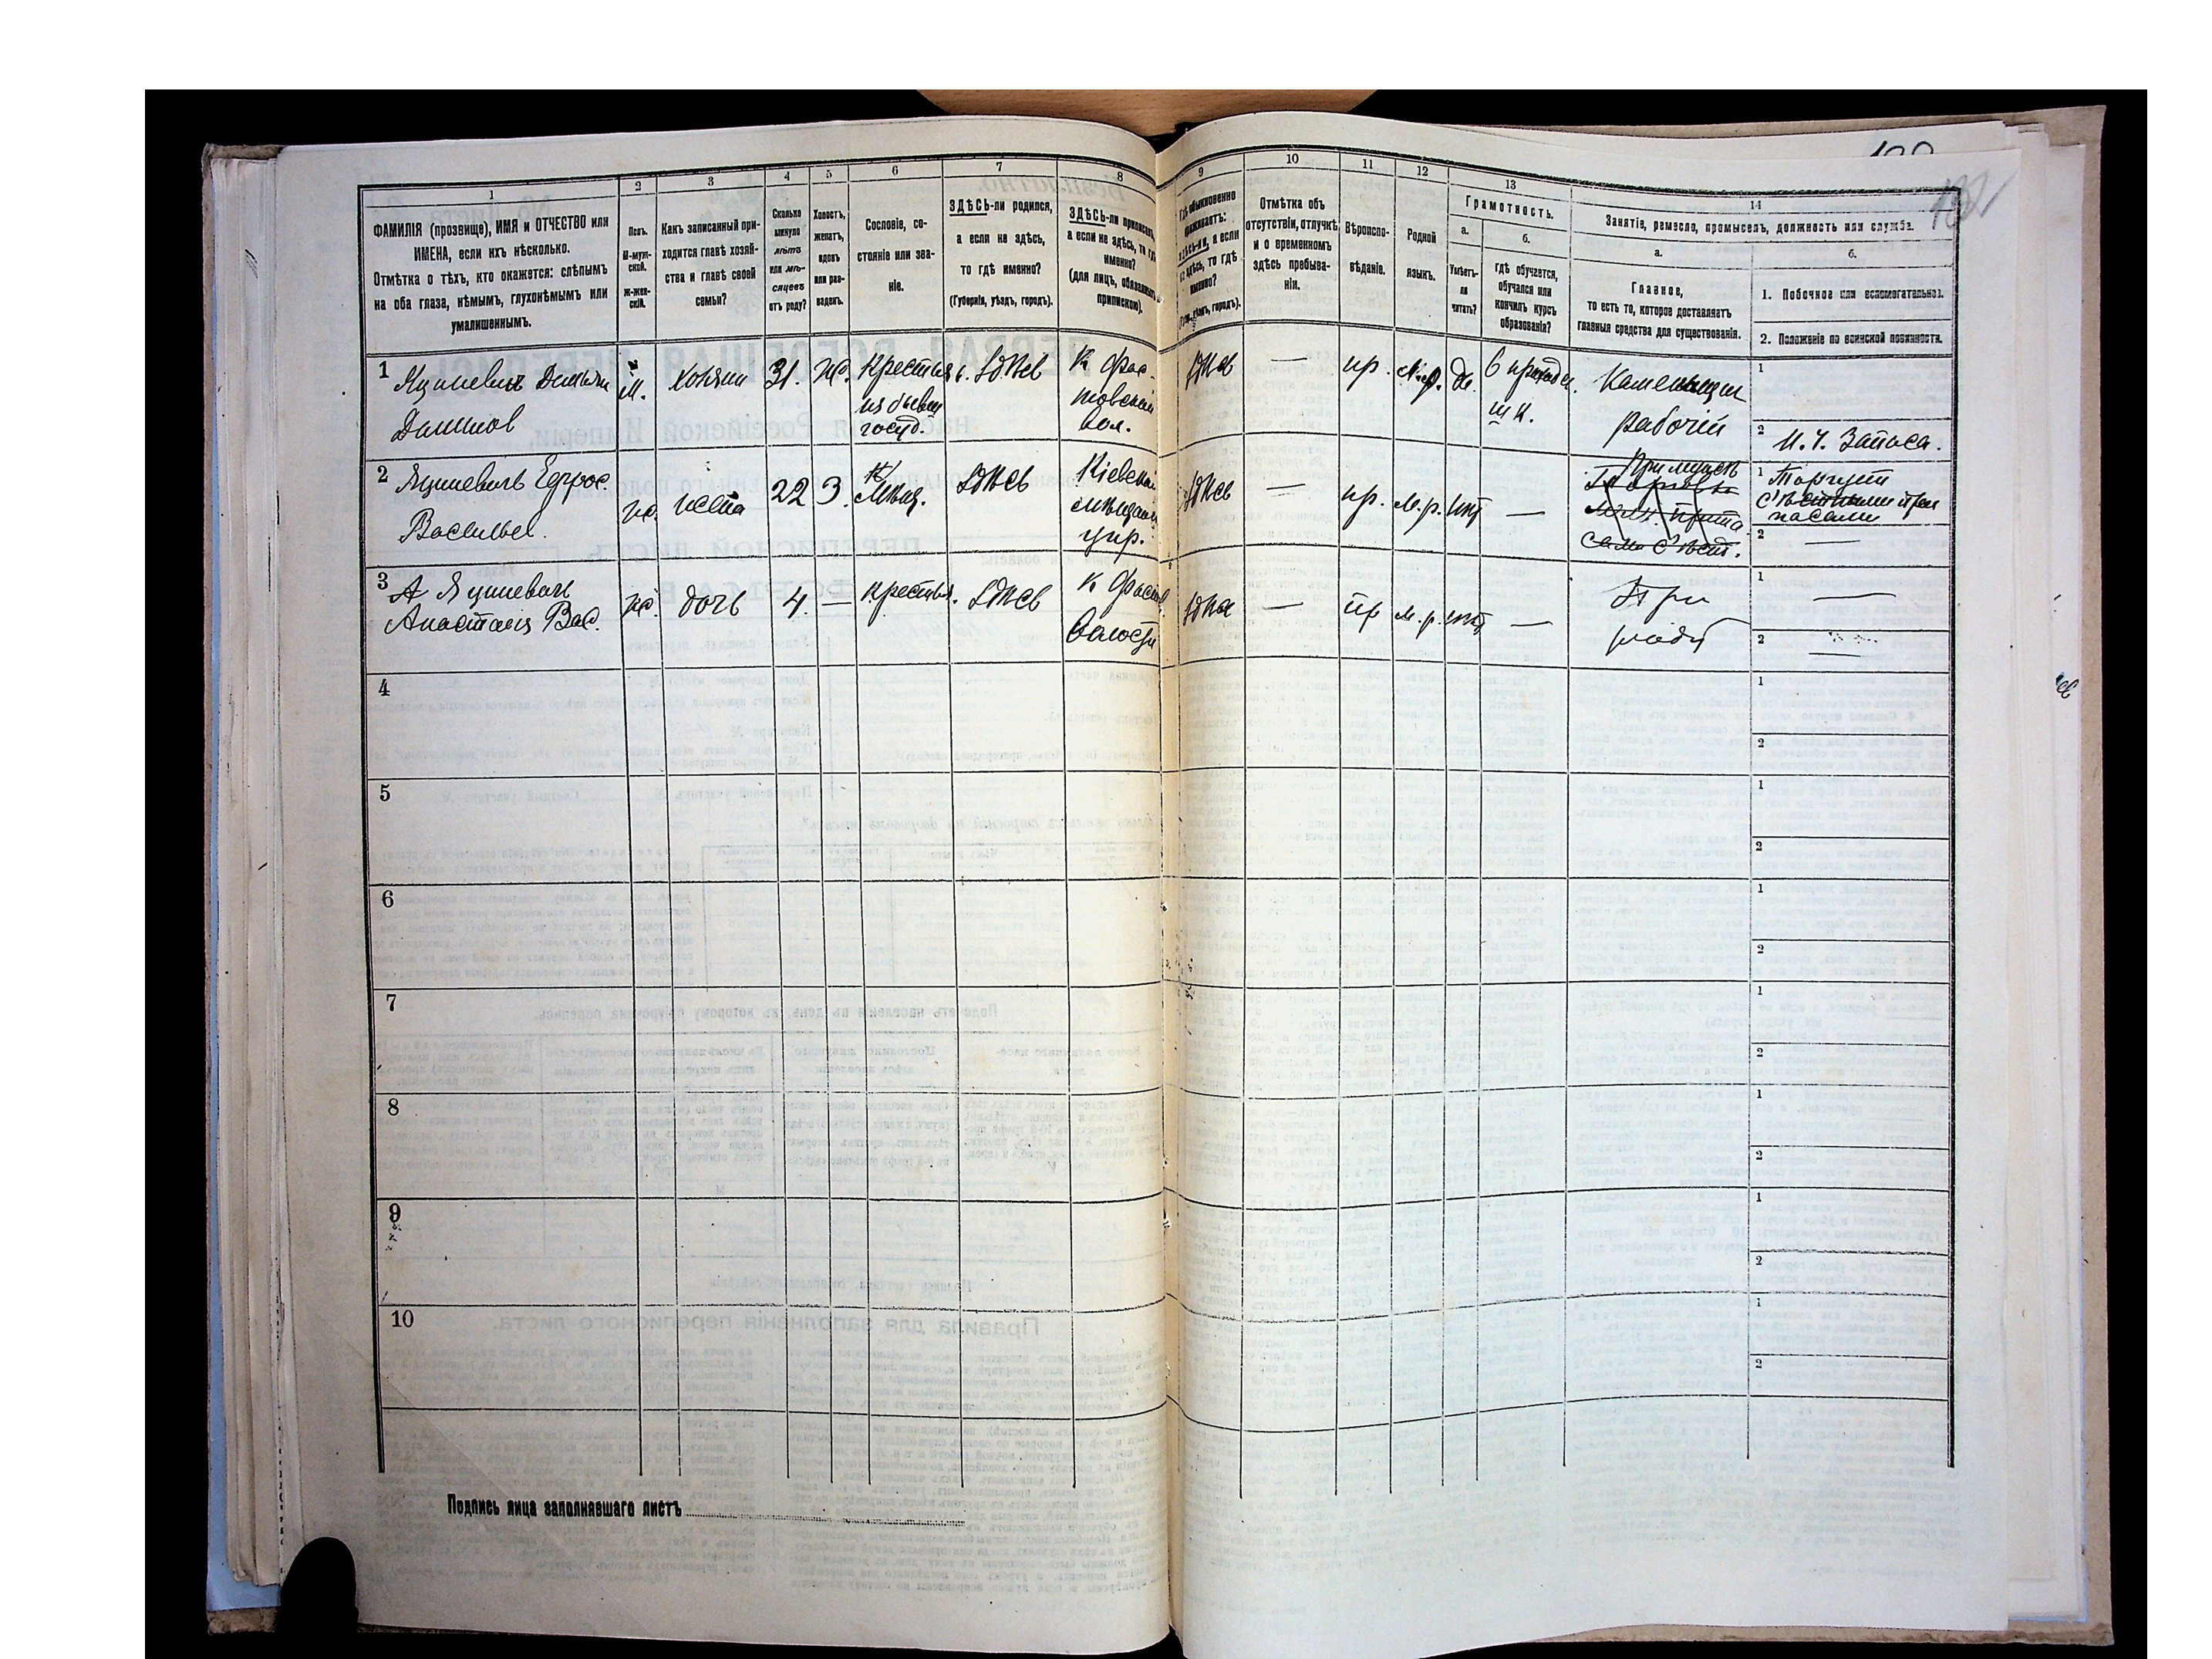 132
1
2
3
4
5
6
7
8
9
10
11
12
13
14
ФАМИЛІЯ (прозвище), ИМЯ и ОТЧЕСТВО или
ИМЕНА, если ихъ нѣсколько.
Отмѣтка о тѣхъ, кто окажется: слѣпымъ
на оба глаза, нѣмымъ, глухонѣмымъ или
умалишеннымъ.
Полъ.
М-муж-
ской.
ж-жен-
скій.
Какъ записанный при-
ходится главѣ хозяй-
ства и главѣ своей
семьи?
Сколько
минуло
лѣтъ
или мѣ-
сяцевъ
отъ роду?
Холостъ,
женатъ,
вдовъ
или раз-
веденъ.
Сословіе, со-
стояніе или зва-
ніе.
ЗДѢСЬ-ли родился,
а если не здѣсь,
то гдѣ именно?
(Губернія, уѣздъ, городъ).
ЗДѢСЬ-ли приписанъ,
а если не здѣсь, то гдѣ
именно?
(для лицъ, обязанныхъ
припискою).
обыкновенно
проживаетъ:
здѣсь-ли, а если
не здѣсь, то гдѣ
именно?
Отмѣтка объ
отсутствіи, отлучкѣ
и о временномъ
здѣсь пребыва-
ніи.
Вѣроиспо-
вѣданіе.
Родной
языкъ.
Грамотность.
а.
Умѣетъ-
ли
читать?
б.
гдѣ обучается,
обучался или
кончилъ курсъ
образованія?
Занятіе, ремесло, промыселъ, должность или служба.
а.
Главное,
то есть то, которое доставляетъ
главныя средства для существованія.
б.
1. Побочное или вспомогательное.
2. Положеніе по воинской повинности.
1
Яцкевичъ
М.
хозяин
31.
Крестья
из бывш
госуд.
здѣсь
К Фас-
товской
вол.
здѣсь
—
пр.
М.р.
да
В приходс.
шк.
Каменщик
рабочій
1
2
И. Ч. Запаса.
2
Яцкевичъ Ефрос.
Васильев.
ж.
жена
22
З.
Мѣщ.
здѣсь
Кіевской
мѣщан
упр.
здѣсь
—
пр.
м.р.
нѣт
—
При мужѣ
Торговка
съѣст.
1
Торгует
съѣстными при
пасами
2
—
3
Яцкевичъ
Анастасія Вас.
ж.
дочь
4.
—
крестья.
здѣсь
к Фаст
Волости
здѣсь
—
пр
м.р.
нѣт
—
При
1
—
2
—
4
1
2
5
1
2
6
1
2
7
1
2
8
1
2
9
1
2
10
1
2
Подпись лица заполнявшаго листъ